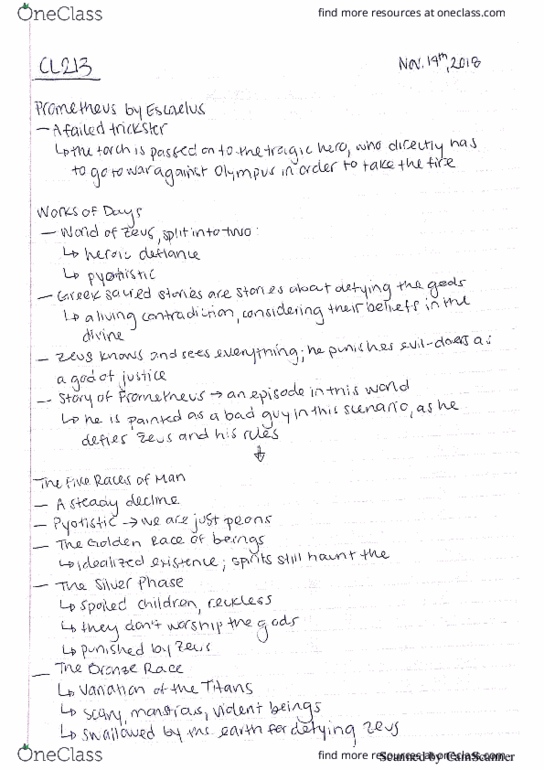 OneClass
find more resources at oneclass.com
CL213
Nov. 19th, 2018
Prometheus by Escaelus
- A failed trickster
↳ the torch is passed on to the tragic hero, who directly has
to go to war against Olympus in order to take the fire
Works of Days
- World of Zeus, split into two:
↳ heroic defiance
↳ pyotistic
- Greek sacred stories are stories about defying the gods
↳ a living contradiction, considering their beliefs in the
divine
- Zeus knows and sees everything; he punishes evil-doers as
a god of justice
- Story of Prometheus → an episode in this world
↳ he is painted as a bad guy in this scenario, as he
defies Zeus and his rules
↓
The Five Races of Man
- A steady decline
- Pyotistic → we are just peons
- The Golden Race of beings
↳ idealized existence; spirits still haunt the
- The Silver Phase
↳ spoiled children, reckless
↳ they don't worship the gods
↳ punished by Zeus
- The Bronze Race
↳ Variation of the Titans
↳ scary, monstrous, violent beings
↳ swallowed by the earth for defying Zeus
OneClass
find more resources at oneclass.com
Scanned by CamScanner